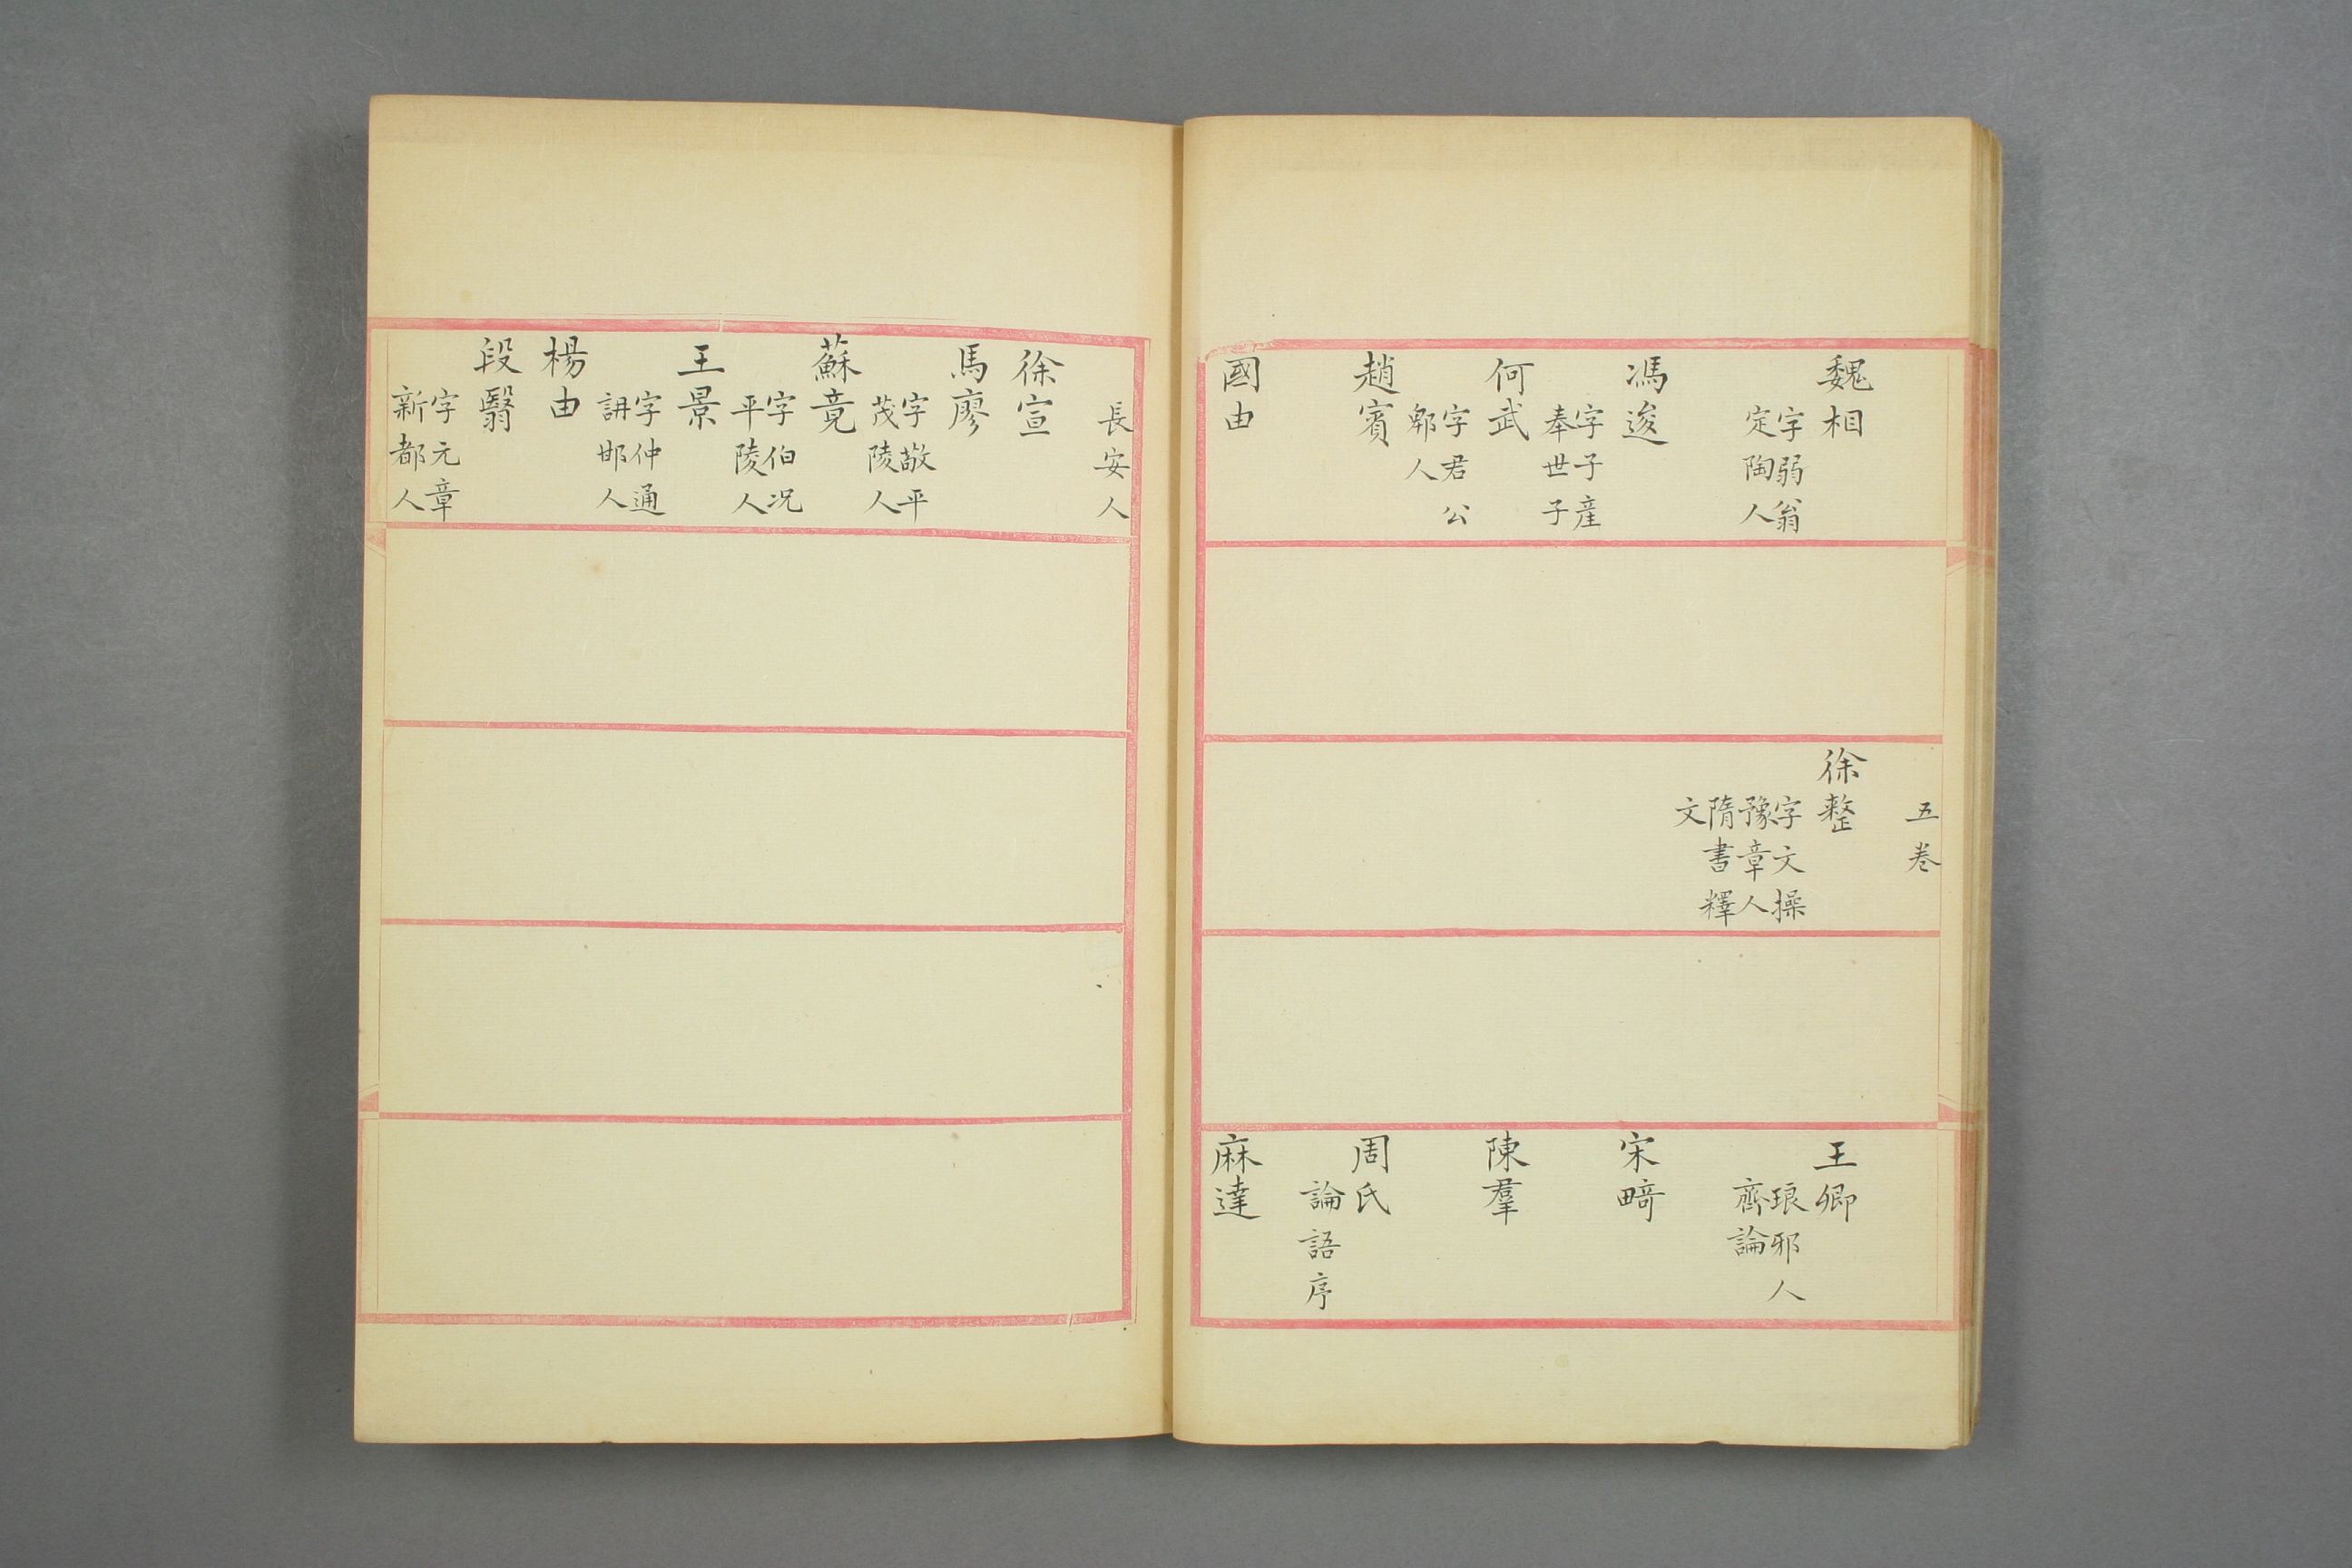 魏相
字弱翁
定陶人
馮逡
字子産
奉世子
何武
字君公
郫人
趙賓
國由
五卷
徐整
字文操
豫章人
隋書釋
文
王卿
琅邪人
齊論
宋畸
陳羣
周氏
論語序
麻達
長安人
徐宣
馬廖
字敬平
茂陵人
蘇竟
字伯况
平陵人
王景
字仲通
誹邯人
楊由
段翳
字元章
新都人